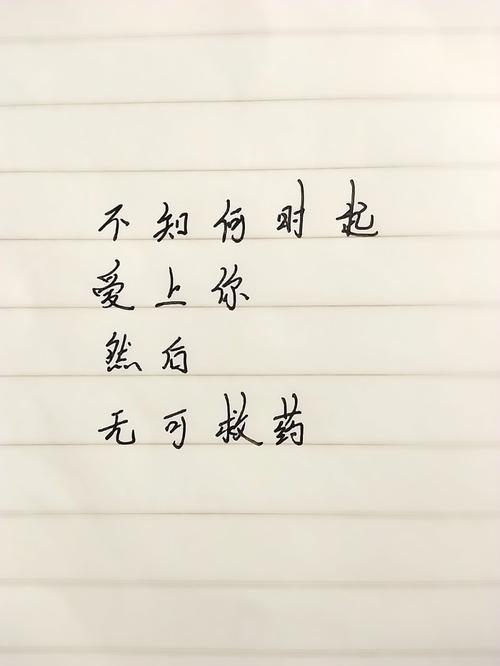 不知何时起
爱上你
然后
无可救药